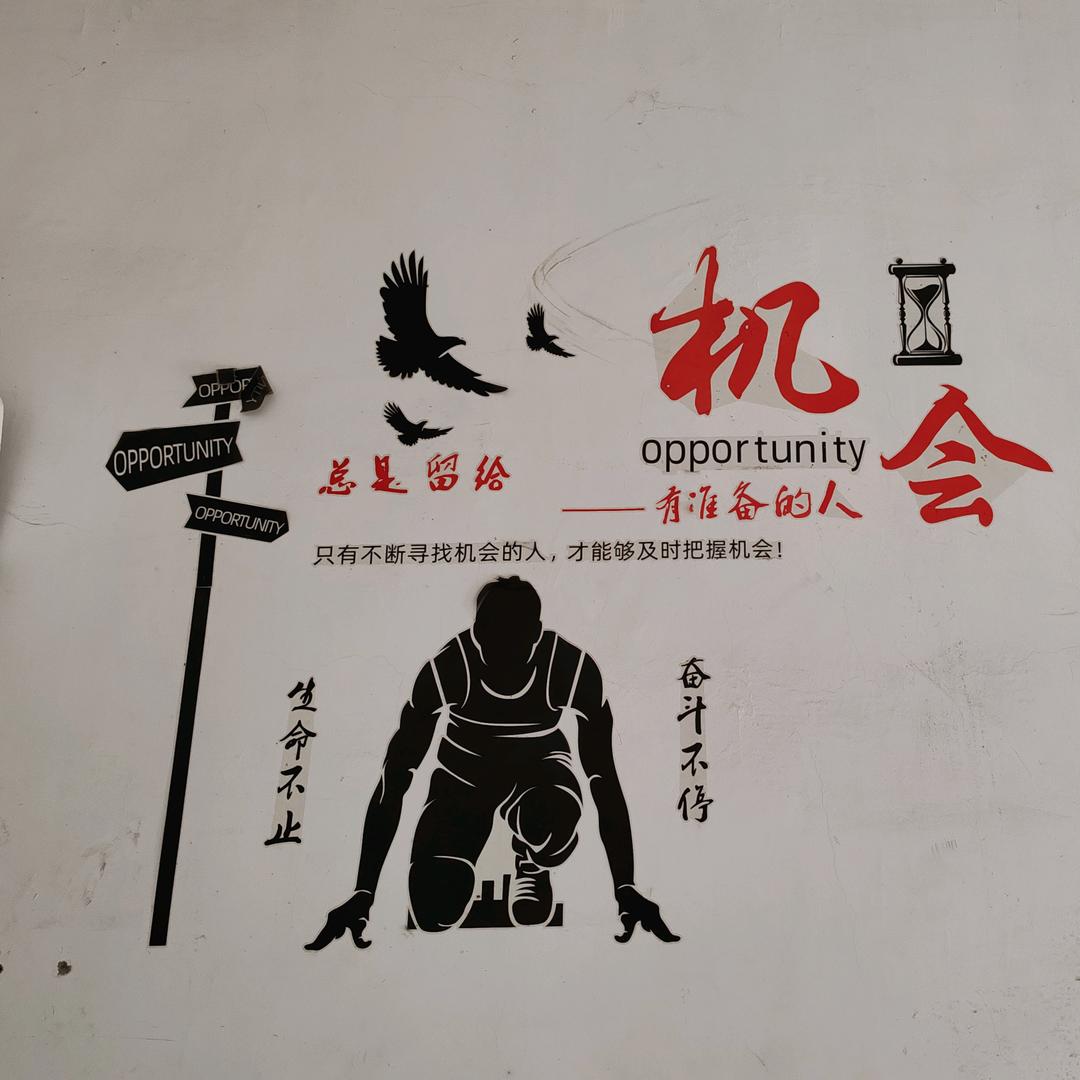 机会
opportunity
总是留给
——有准备的人
只有不断寻找机会的人，才能够及时把握机会！
生命不止
奋斗不停
OPPOR
OPPORTUNITY
OPPORTUNITY